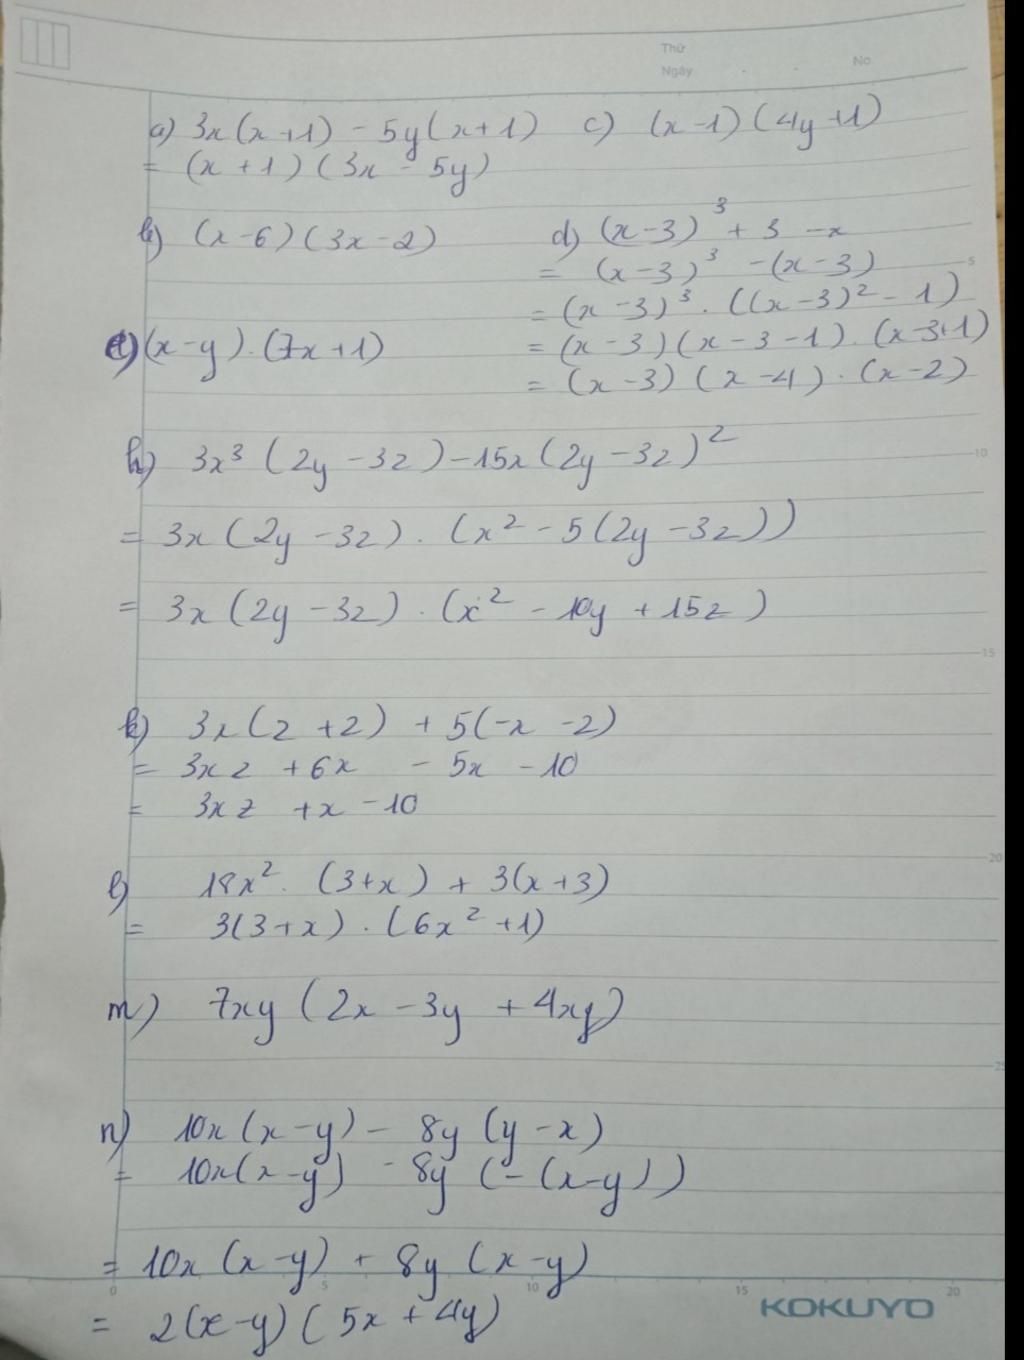 Thứ
Ngày . . No
a) 3x(x+1) - 5y(x+1)
= (x+1)(3x - 5y)
c) (x-1)(4y+1)
b) (x-6)(3x-2)
d) (x-3)³ + 3 - x
= (x-3)³ - (x-3)
= (x-3)³ . ((x-3)² - 1)
= (x-3)(x-3-1) . (x-3+1)
= (x-3)(x-4) . (x-2)
e) (x-y) . (7x+1)
h) 3x³ (2y - 3z) - 15x(2y - 3z)²
= 3x(2y - 3z) . (x² - 5(2y - 3z))
= 3x(2y - 3z) . (x² - 10y + 15z)
k) 3x(z+2) + 5(-x - 2)
= 3xz + 6x - 5x - 10
= 3xz + x - 10
l) 18x² . (3+x) + 3(x+3)
= 3(3+x) . (6x² + 1)
m) 7xy (2x - 3y + 4xy)
n) 10x(x-y) - 8y(y-x)
= 10x(x-y) - 8y(-(x-y))
= 10x(x-y) + 8y(x-y)
= 2(x-y)(5x+4y)
5
10
15
20
25
0 5 10 15 20
KOKUYO